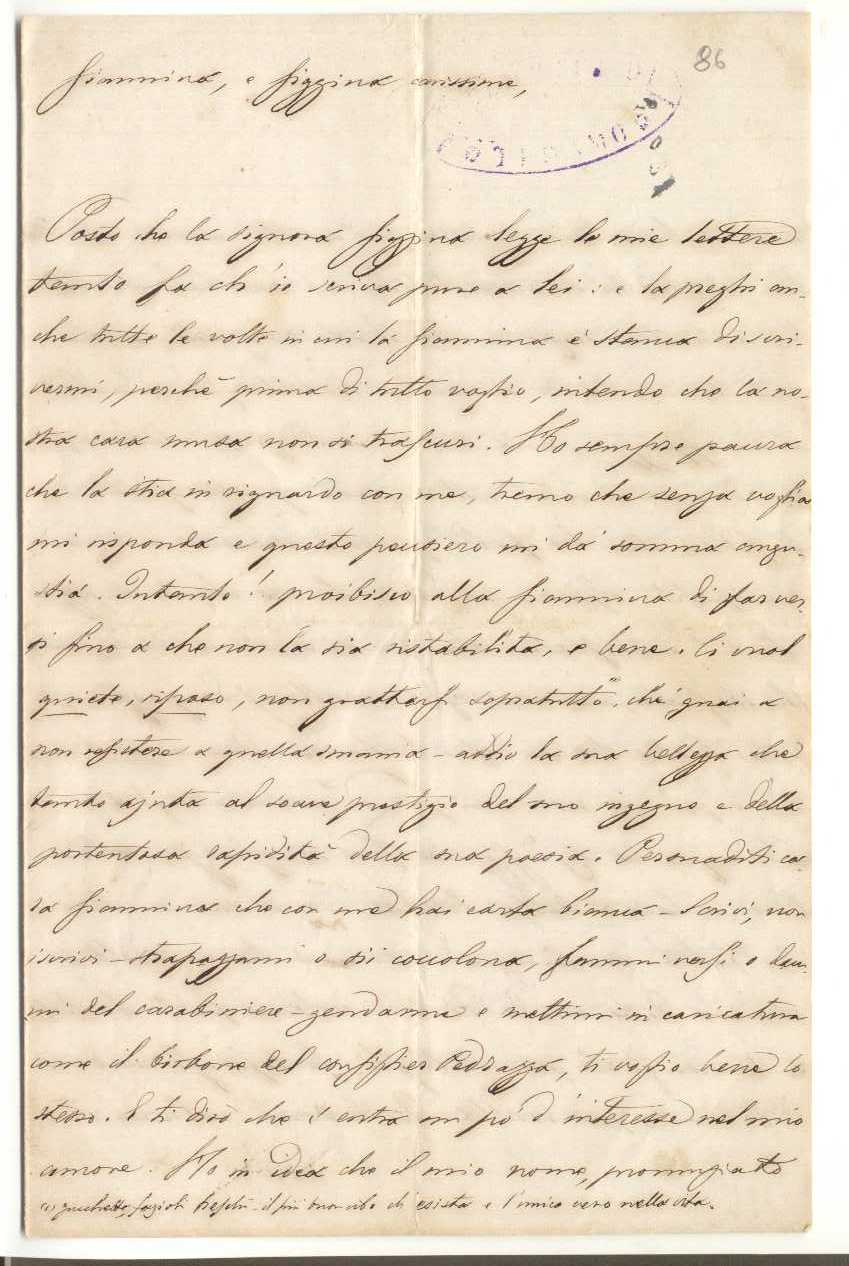 86
Giannina, e Giggina carissime,
Posto che la signora Giggina legge le mie lettere
tanto fa ch'io scriva pure a lei: e la preghi an-
che tutte le volte in cui la Giannina è stanca di scri-
vermi, perchè prima di tutto voglio, intendo che la no-
stra cara musa non si trascuri. Ho sempre paura
che la stia in riguardo con me, tremo che senza voglia
mi risponda e questo pensiero mi dà somma angu-
stia. Intanto! proibisco alla Giannina di far ver-
si fino a che non la sia ristabilita, e bene. Ci vuol
quiete, riposo, non grattarsi sopratutto, chè guai a
non resistere a quella smania - addio la sua bellezza che
tanto ajuta al soave prestigio del suo ingegno e della
portentosa rapidità della sua poesia. Persuaditi ca-
ra Giannina che con me hai carta bianca - Scrivi, non
iscrivi - strapazzami o sii coccolona, fammi versi o dam-
mi del carabiniere - gendarme e mettimi in caricatura
come il birbone del consiglier Pedrazza, ti voglio bene lo
stesso. E ti dirò che c'entra un pò d'interesse nel mio
amore. Ho in idea che il mio nome, pronunziato
(1) fagioli freschi - il più buon cibo ch'esista e l'unico vero nella vita.